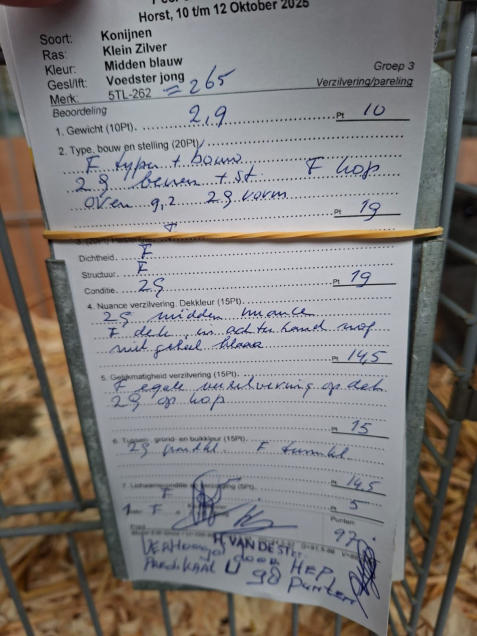 Horst, 10 t/m 12 Oktober 2025
Soort: Konijnen
Ras: Klein Zilver
Kleur: Midden blauw
Gesl/lft: Voedster jong
Groep 3
Merk: 5TL-262 = 265
Verzilvering/pareling
Beoordeling
1. Gewicht (10Pt). 2,9 Pt 10
2. Type, bouw en stelling (20Pt)
F type + bouw
2g benen + st F kop
oren 9,2 2g vorm
Pt 19
Dichtheid F
Structuur F
Conditie 2g Pt 19
4. Nuance verzilvering. Dekkleur (15Pt).
2g midden nuance
F dek, in achterhand nog
niet geheel klaar
Pt 14,5
5. Gelijkmatigheid verzilvering (15Pt).
F egale verzilvering op dek
2g op kop
Pt 15
6. Tussen-, grond- en buikkleur (15Pt).
2g grondkl. F tussenkl.
Pt 14,5
7. Lichaamsconditie en verzorging (5Pt).
F
Pt 5
F
Punten
97
H. VAN DE
Verhoogd door HEP
Predikaat U 98 punten